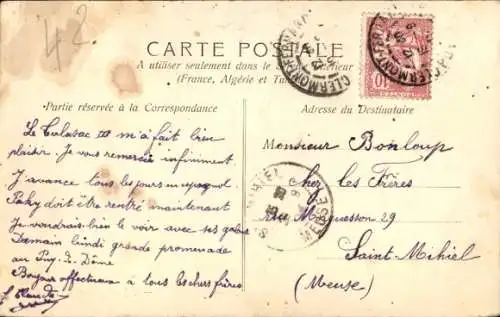 42
CARTE POSTALE
A utiliser seulement dans le intérieur
(France, Algérie et
Partie réservée à la Correspondance
Adresse du Destinataire
CLERMONT-FERRAND
CLERMONT-FERRAND
10
MIHIEL
MEUSE
Le m'a fait bien
plaisir. Je vous remercie infiniment.
J'avance tous les jours en espagnol.
doit être rentré maintenant
Je voudrais bien le voir avec ses
Demain lundi grande promenade
au Puy-de-Dôme
Bonjour affectueux à tous les chers frères
Monsieur Bonloup
Chez les Frères
Rue 29
Saint-Mihiel
(Meuse)